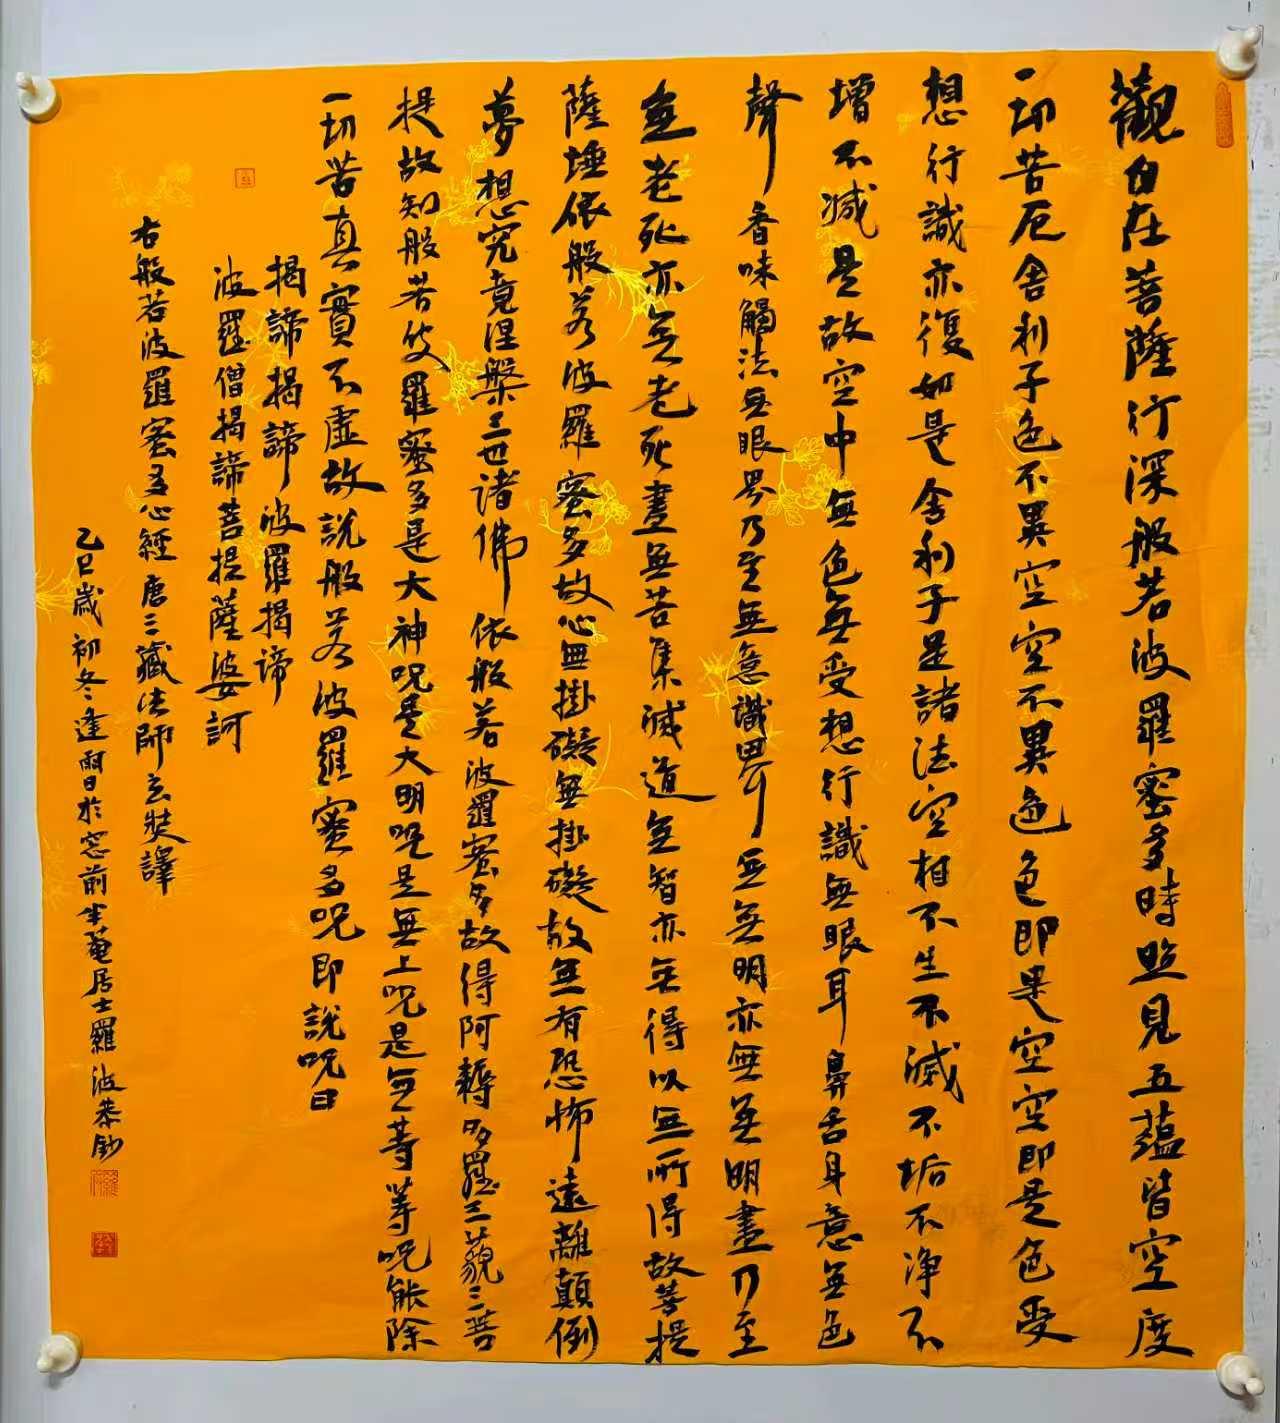 觀自在菩薩行深般若波羅蜜多時照見五蘊皆空度
一切苦厄舍利子色不異空空不異色色即是空空即是色受
想行識亦復如是舍利子是諸法空相不生不滅不垢不净不
增不減是故空中無色無受想行識無眼耳鼻舌身意無色
聲香味觸法無眼界乃至無意識界無無明亦無無明盡乃至
無老死亦無老死盡無苦集滅道無智亦無得以無所得故菩提
薩埵依般若波羅蜜多故心無掛礙無掛礙故無有恐怖遠離顛倒
夢想究竟涅槃三世諸佛依般若波羅蜜多故得阿耨多羅三藐三菩
提故知般若波羅蜜多是大神呪是大明呪是無上呪是無等等呪能除
一切苦真實不虛故說般若波羅蜜多呪即說呪曰
揭諦揭諦波羅揭諦
波羅僧揭諦菩提薩婆訶
右般若波羅蜜多心經唐三藏法師玄奘譯
乙巳歲初冬逢雨日於窓前半菴居士羅波恭鈔